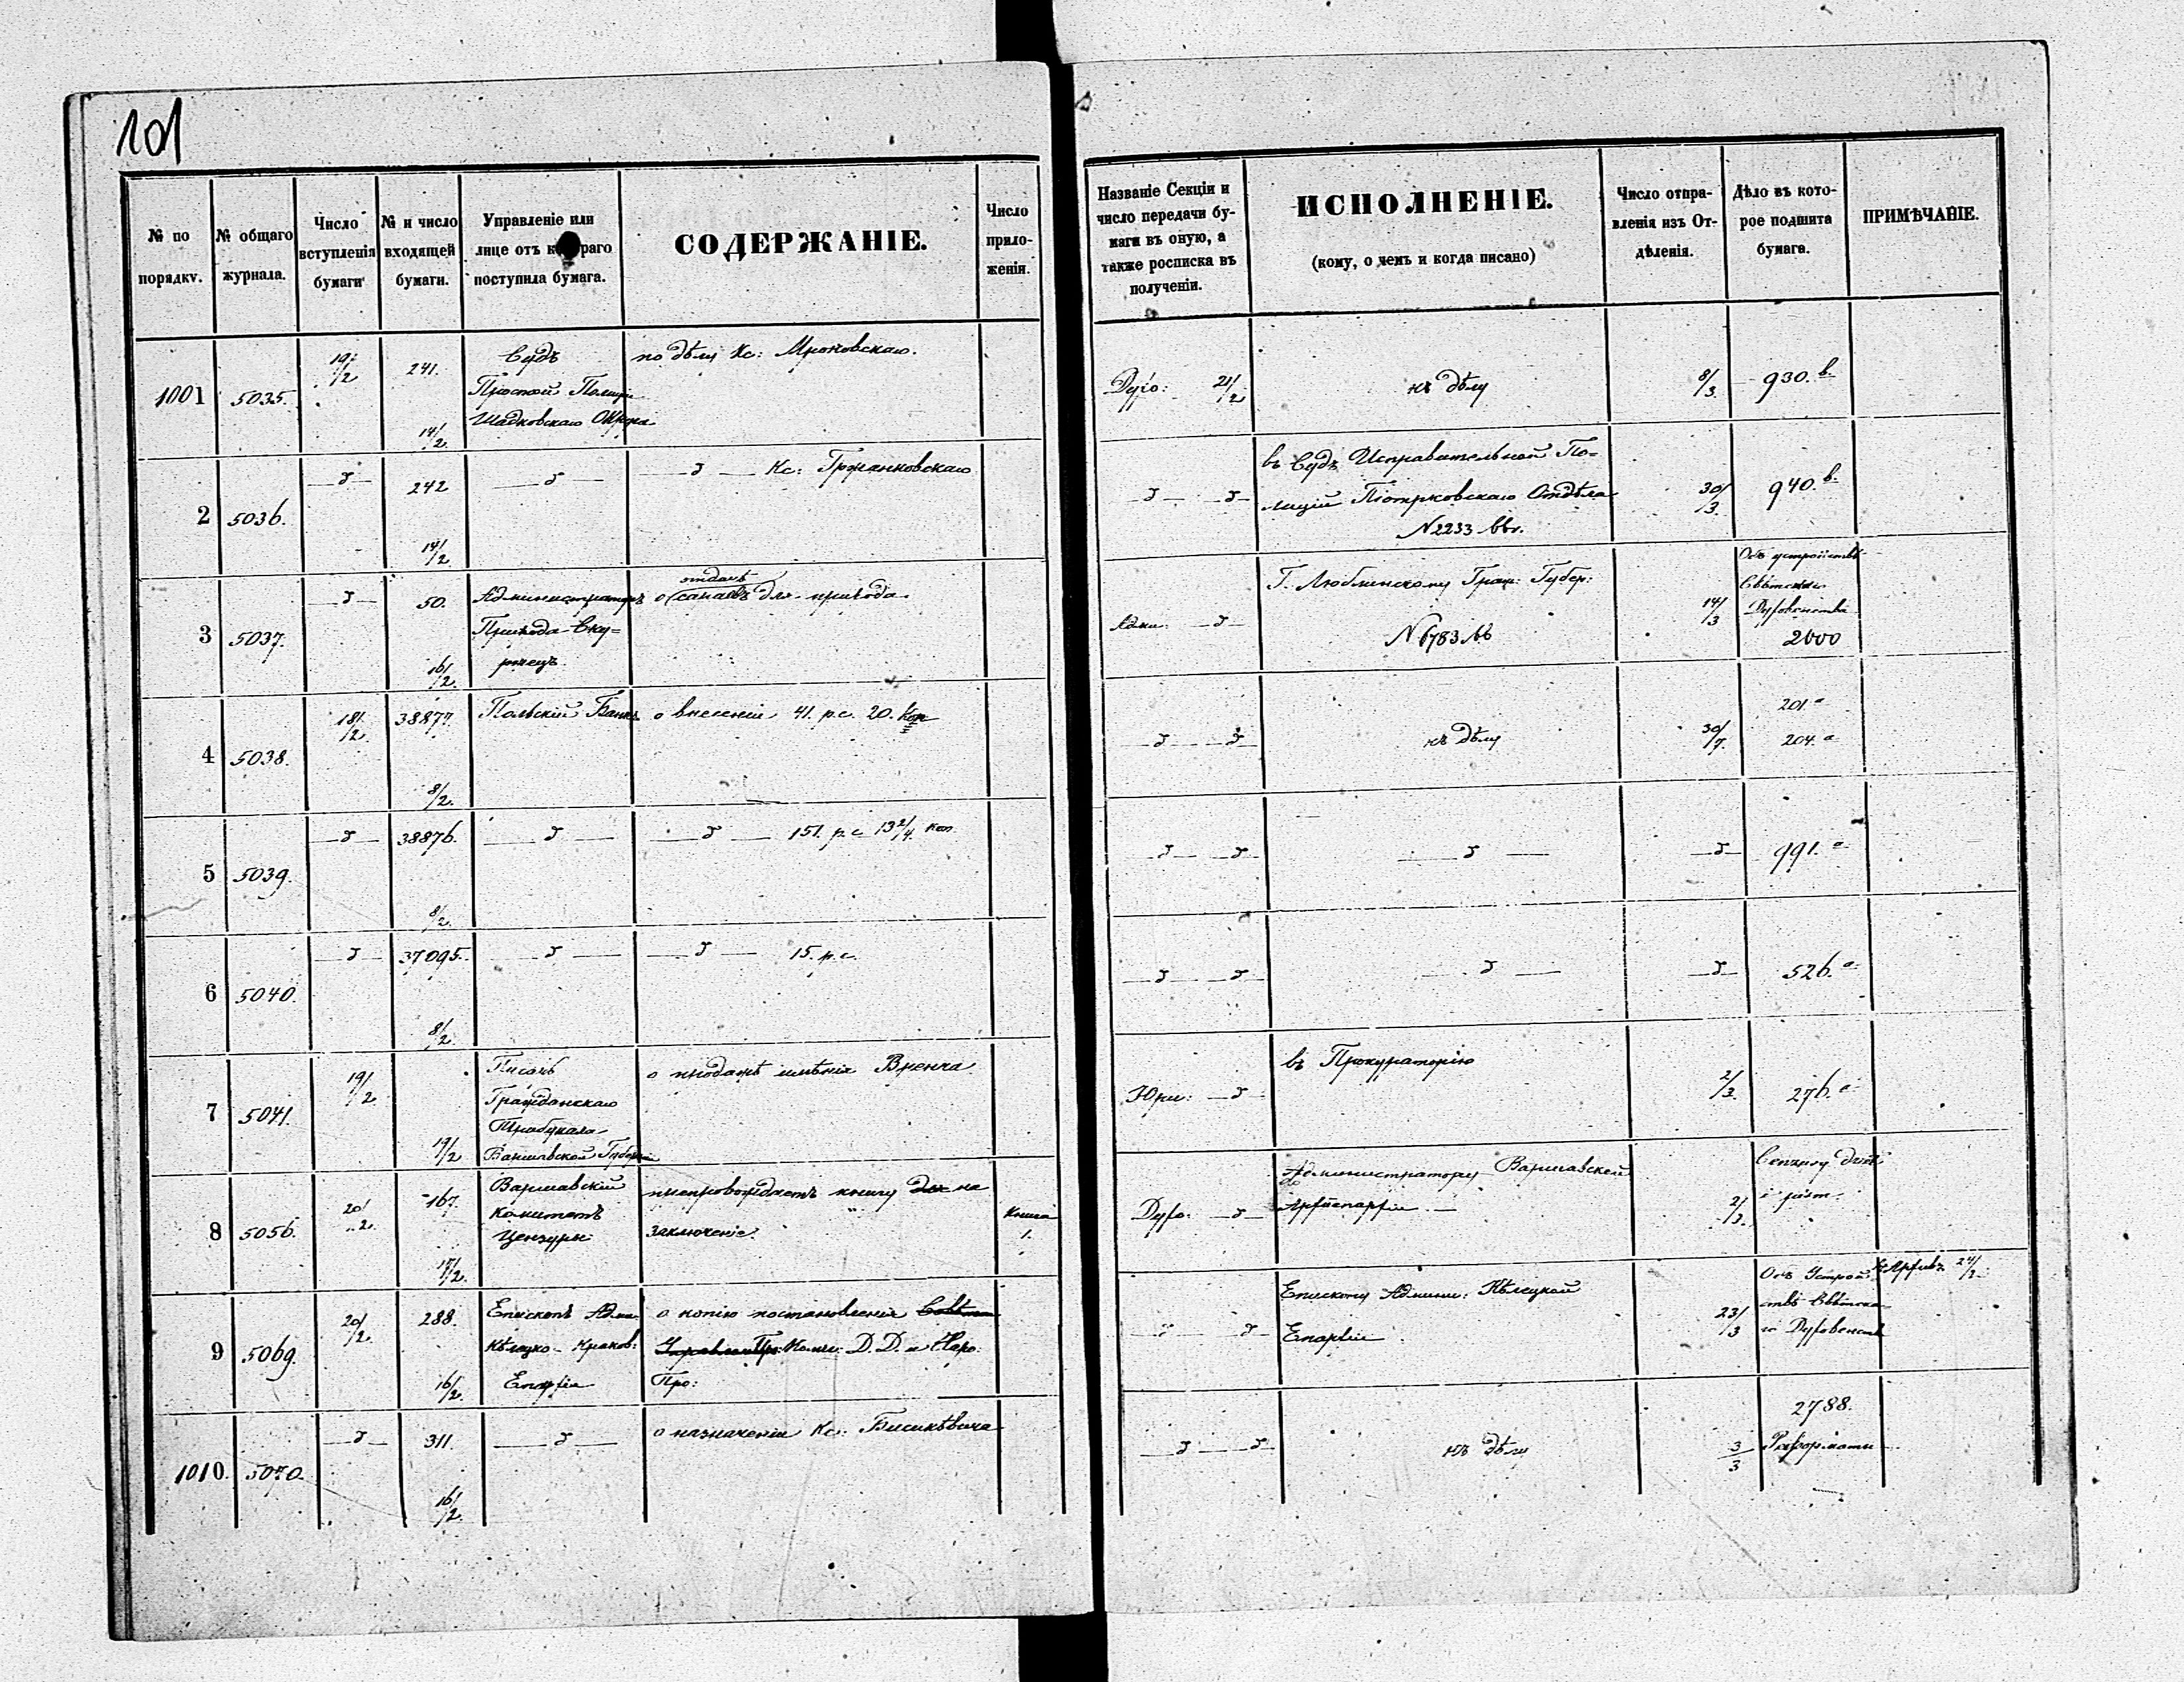 101
№ по порядку.
№ общаго журнала.
Число вступленія бумаги
№ и число входящей бумаги.
Управленіе или лице отъ котораго поступила бумага.
СОДЕРЖАНІЕ.
Число приложенія.
Названіе Секціи и
число передачи бу-
маги въ оную, а
также росписка въ
полученіи.
ИСПОЛНЕНІЕ.
(кому, о чемъ и когда писано)
Число отпра-
вленія изъ От-
дѣленія.
Дѣло въ кото-
рое подшита
бумага.
ПРИМѢЧАНІЕ.
1001 5035. 19/2 241. 14/2.
Судъ
Простой Полиціи
Шадковскаго Округа
по дѣлу Кс:
21/2 къ дѣлу 8/3. 930. в.
2 5036. 242 14/2
Кс:
въ Судъ Исправительной По-
лиціи Піотрковскаго Отдѣла
N 2233
30/3. 940. в.
3 5037. 50. 16/2.
Администраторъ
Прихода
для прихода
Г. Люблинскому Граж: Губер:
N 6783
14/3
Объ устройствѣ
Свѣтскаго
Духовенства
2000
4 5038. 18/2. 38877. 8/2.
Польскій Банкъ
о внесеніи 41. р.с. 20. Коп
къ дѣлу 30/7. 201. а
204. а
5 5039. 38876. 8/2.
151. р.с. 13 2/4. коп.
991. а
6 5040. 37095. 8/2
15. р.с.
526. а
7 5041. 19/2 19/2
Писарь
Гражданскаго
Трибунала
Варшавской Губерніи
о продажѣ имѣнія
Юри:
въ Прокураторію
2/3. 276. а
8 5056. 20/2. 167. 17/2.
Варшавскій
Комитетъ
Цензуры
препровождаетъ книгу для на
заключеніе.
Книга
1.
Духо:
Администратору Варшавской
Архіепархіи
2/3.
9 5069. 20/2. 288. 16/2.
Епископъ Адми:
Кѣлецко-Краков:
Епархіи
о копію постановленія Совѣта
Управленія Пр: Комми: Д. Д. и Наро:
Про:
Епископу Админи: Кѣлецкой
Епархіи
23/3
Объ Устрой-
ствѣ Свѣтска-
го Духовенств
1010. 5070. 311. 16/2.
о назначеніи Кс:
къ дѣлу 3/3
2788.
Реформаты